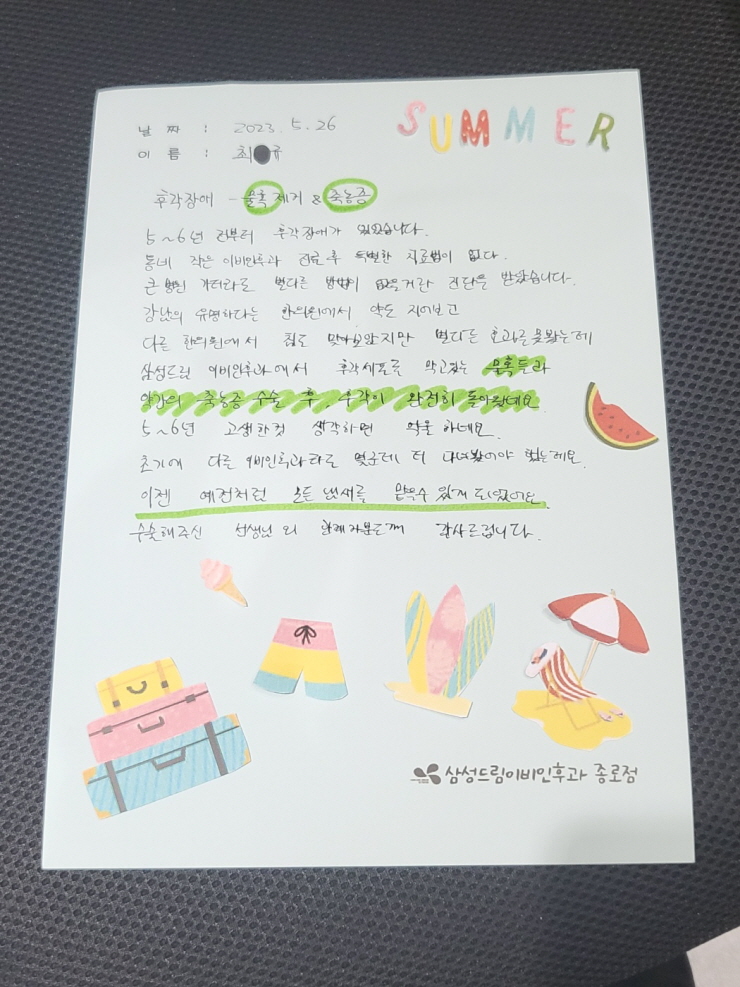 SUMMER
날 짜 : 2023. 5. 26
이 름 : 최●규
후각장애 - 물혹 제거 & 축농증
5~6년 전부터 후각장애가 있었습니다.
동네 작은 이비인후과 진료 후 특별한 치료법이 없다.
큰 병원 가더라도 별다른 방법이 없을거란 진단을 받았습니다.
강남의 유명하다는 한의원에서 약도 지어보고
다른 한의원에서 침도 맞아보았지만 별다른 효과를 못봤는데
삼성드림 이비인후과에서 후각세포를 막고있는 물혹들과
약간의 축농증 수술 후, 후각이 완전히 돌아왔네요.
5~6년 고생한것 생각하면 억울하네요.
초기에 다른 이비인후과라도 몇군데 더 다녀봤어야 했는데요.
이젠 예전처럼 모든 냄새를 맡을수 있게 되었어요.
수술해주신 선생님 외 관계자분들께 감사드립니다.
삼성드림이비인후과 종로점